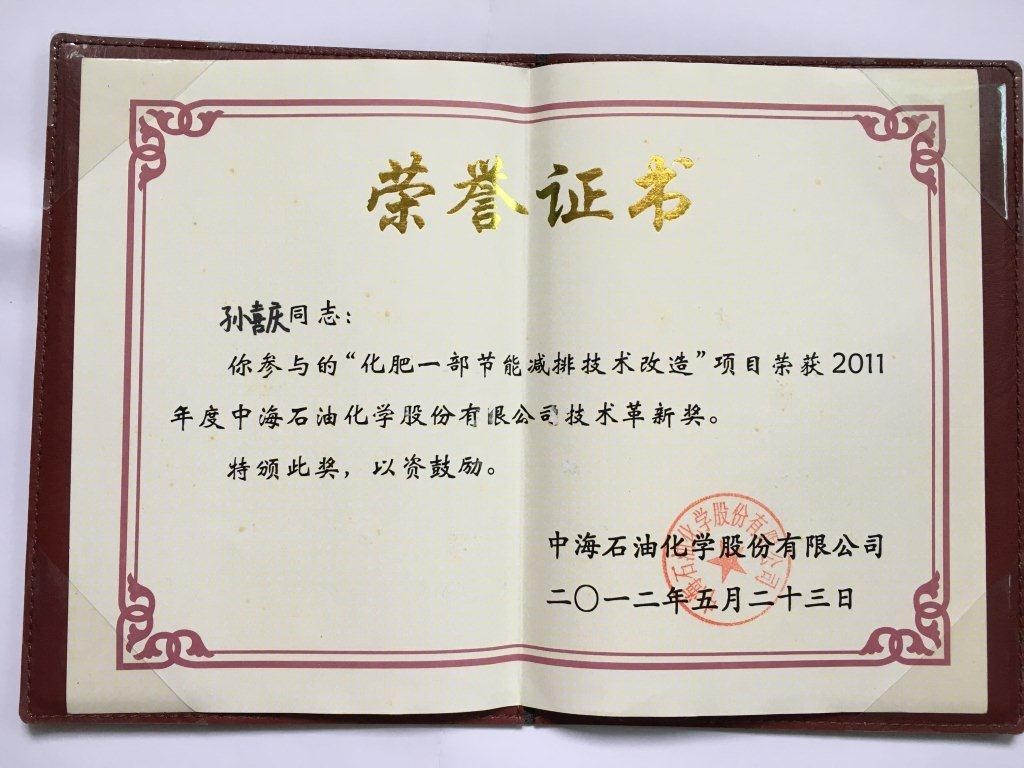 荣誉证书
孙喜庆同志：
你参与的“化肥一部节能减排技术改造”项目荣获2011
年度中海石油化学股份有限公司技术革新奖。
特颁此奖，以资鼓励。
中海石油化学股份有限公司
二〇一二年五月二十三日
中海石油化学股份有限公司